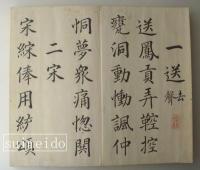 一送 去聲
送鳳貢弄鞚控
甕洞動慟諷仲
恫夢衆痛惚
二宋
宋綜俸用頌
suimeido